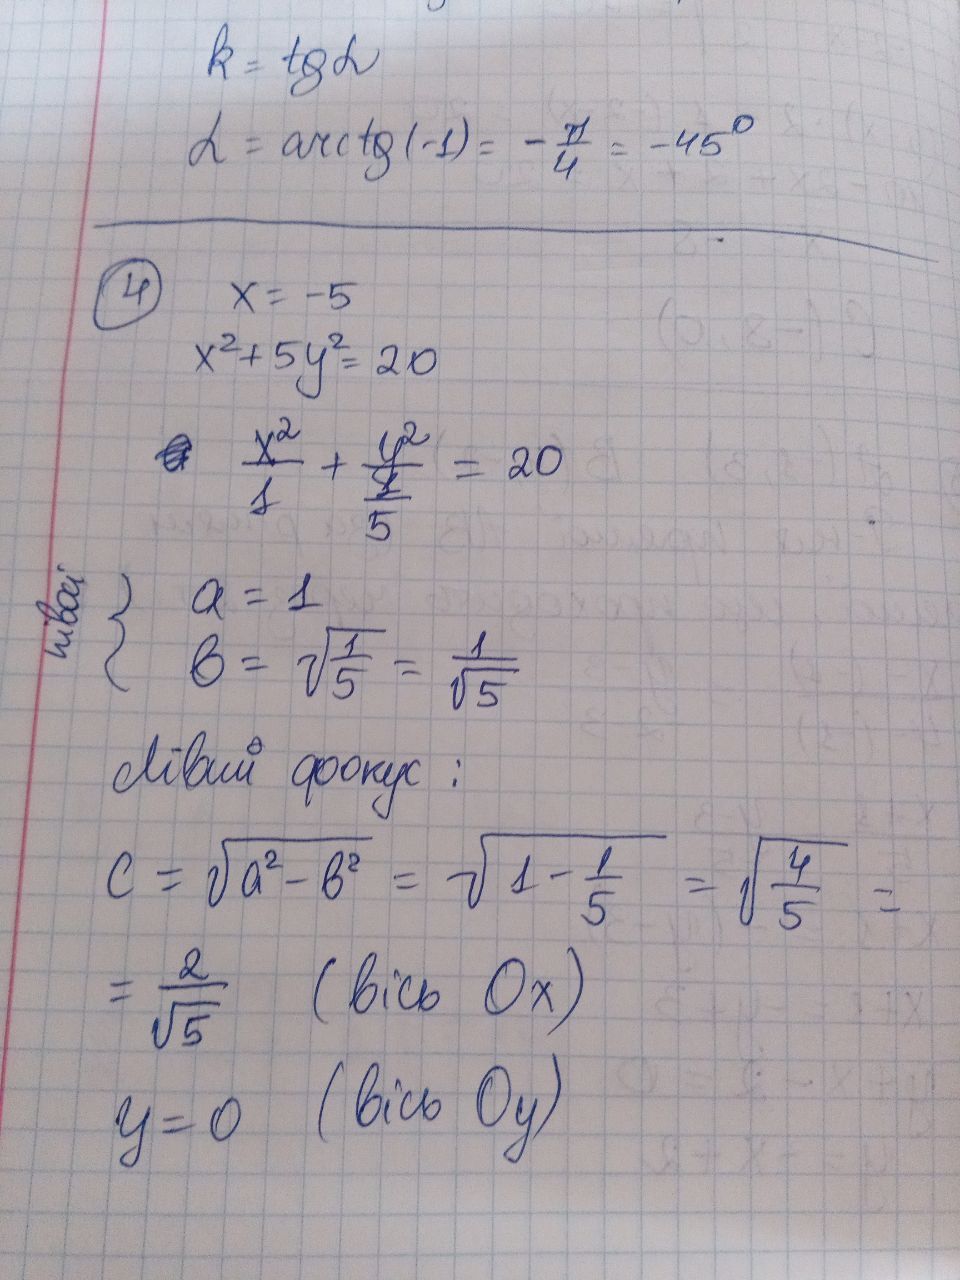 k = tg α
α = arctg(-1) = -π/4 = -45°
4 x = -5
x² + 5y² = 20
x²/1 + y²/(1/5) = 20
півосі { a = 1
b = √(1/5) = 1/√5
Лівий фокус :
c = √(a² - b²) = √(1 - 1/5) = √(4/5) =
= 2/√5 (вісь Ox)
y = 0 (вісь Oy)